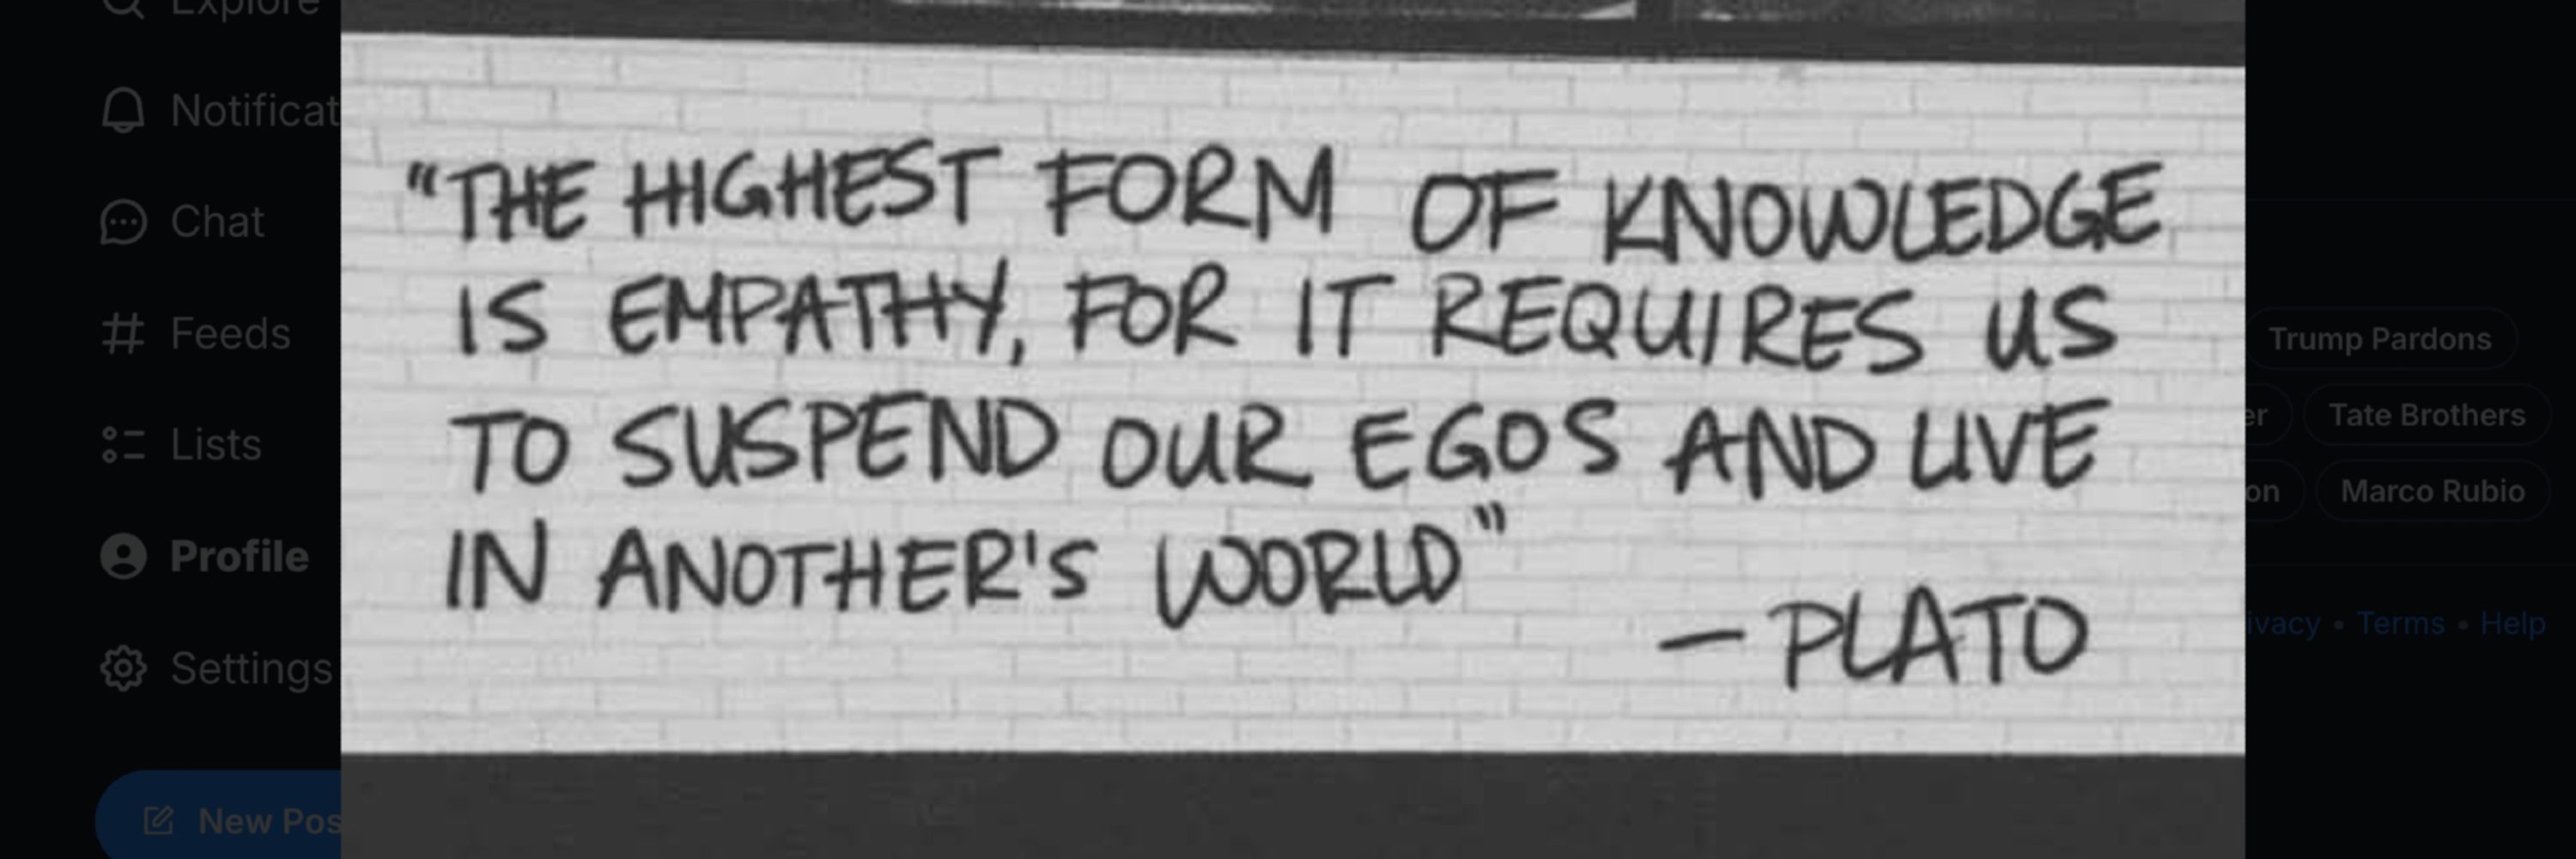 Explore
Notificat
Chat
Feeds
Lists
Profile
Settings
New Pos
“THE HIGHEST FORM OF KNOWLEDGE
IS EMPATHY, FOR IT REQUIRES US
TO SUSPEND OUR EGOS AND LIVE
IN ANOTHER'S WORLD”
— PLATO
Trump Pardons
er
Tate Brothers
on
Marco Rubio
ivacy • Terms • Help